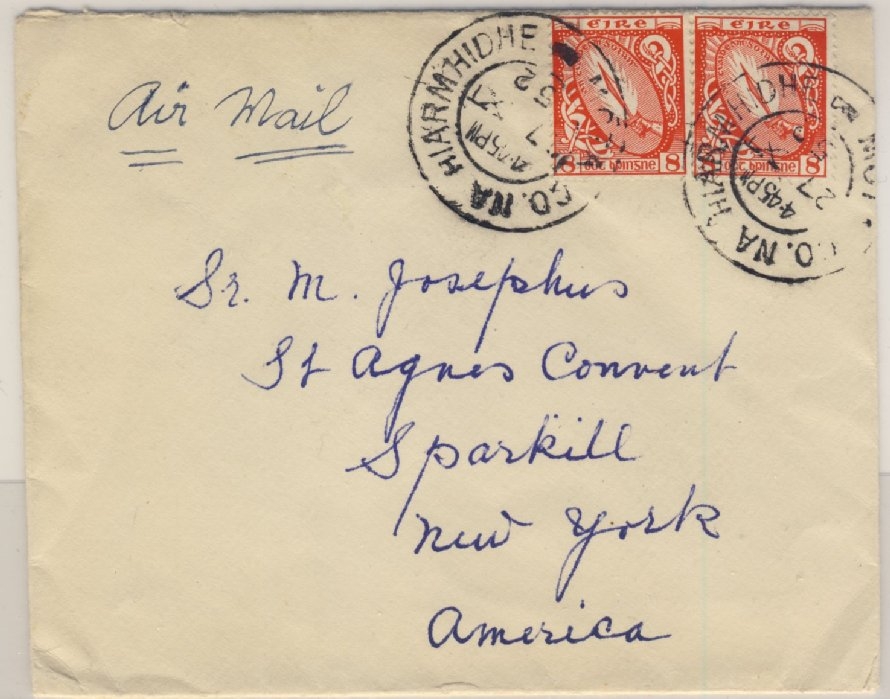 Air Mail
ÉIRE ÉIRE
8 8 8
CO. NA HIARMHIDHE
4.45PM
CO. NA HIARMHIDHE
4.45PM
27
Sr. M. Josephus
St Agnes Convent
Sparkill
New York
America